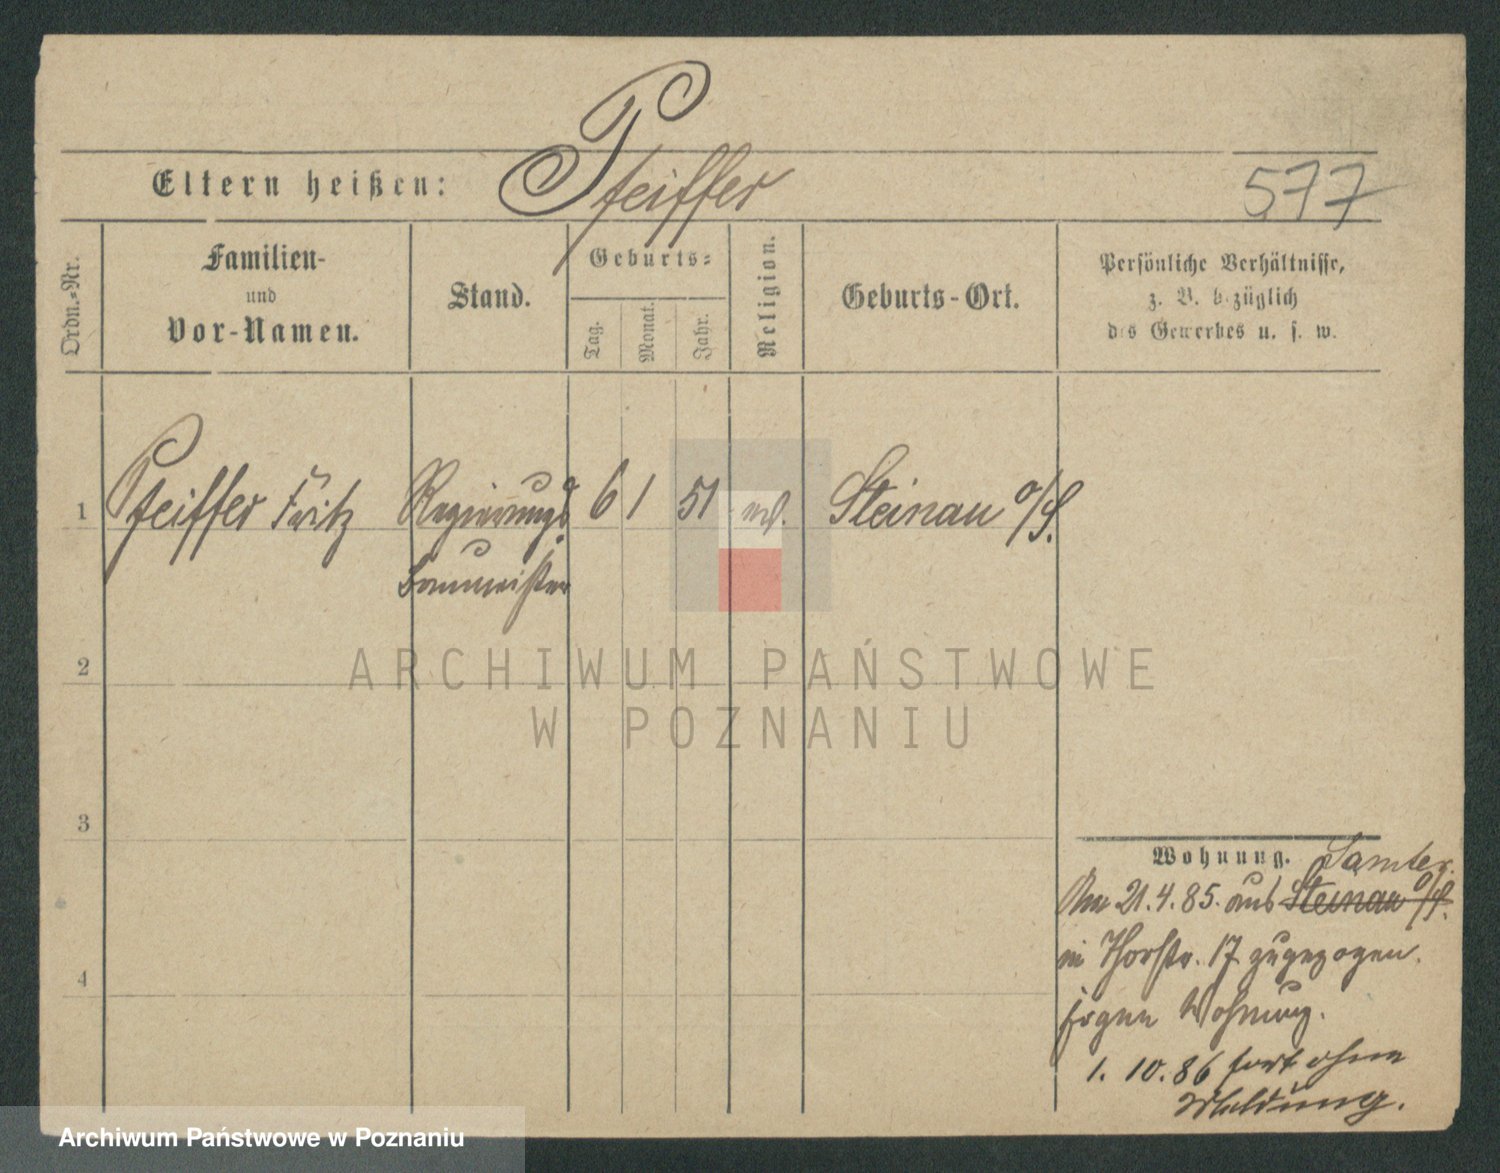 Pfeiffer
Eltern heißen:
577
Ordn.-Nr.
Familien-
und
Vor-Namen.
Stand.
Geburts-
Tag.
Monat.
Jahr.
Religion.
Geburts-Ort.
Persönliche Verhältnisse,
z. B. bezüglich
des Gewerbes u. s. w.
1 Pfeiffer Fritz Regierungs 6 1 51 Steinau o/S.
Baumeister
2
3
4
ARCHIWUM PAŃSTWOWE
W POZNANIU
Wohnung. Samter.
Am 21.4.85. aus Steinau o/S.
in Thorstr. 17 zugezogen.
Wohnung.
1. 10. 86 fort ohne
Meldung.
Archiwum Państwowe w Poznaniu